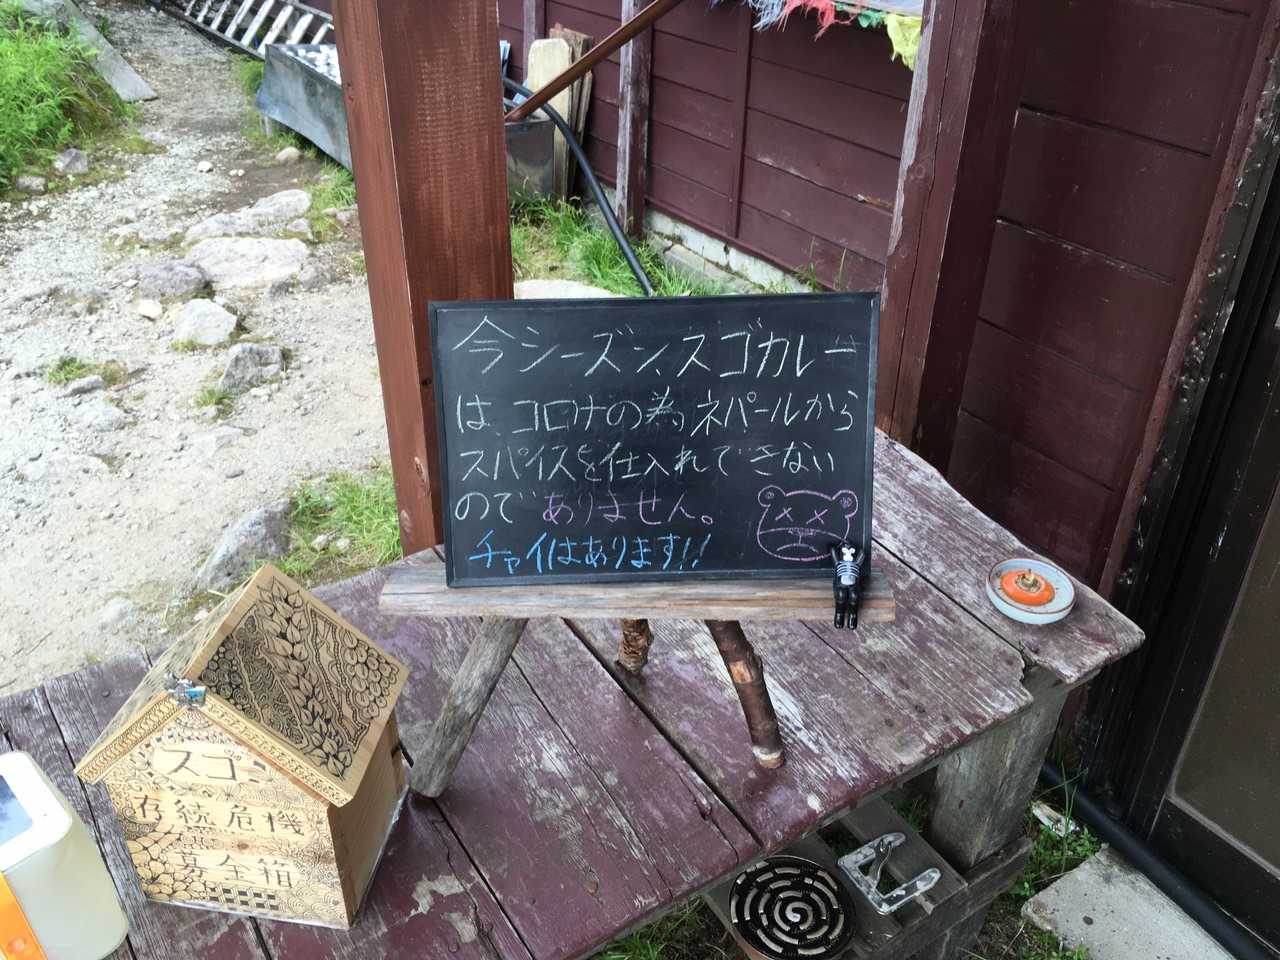 今シーズン、スゴカレー
は、コロナの為ネパールから
スパイスを仕入れできない
のでありません。
チャイはあります!!
スゴ
存続危機
募金箱